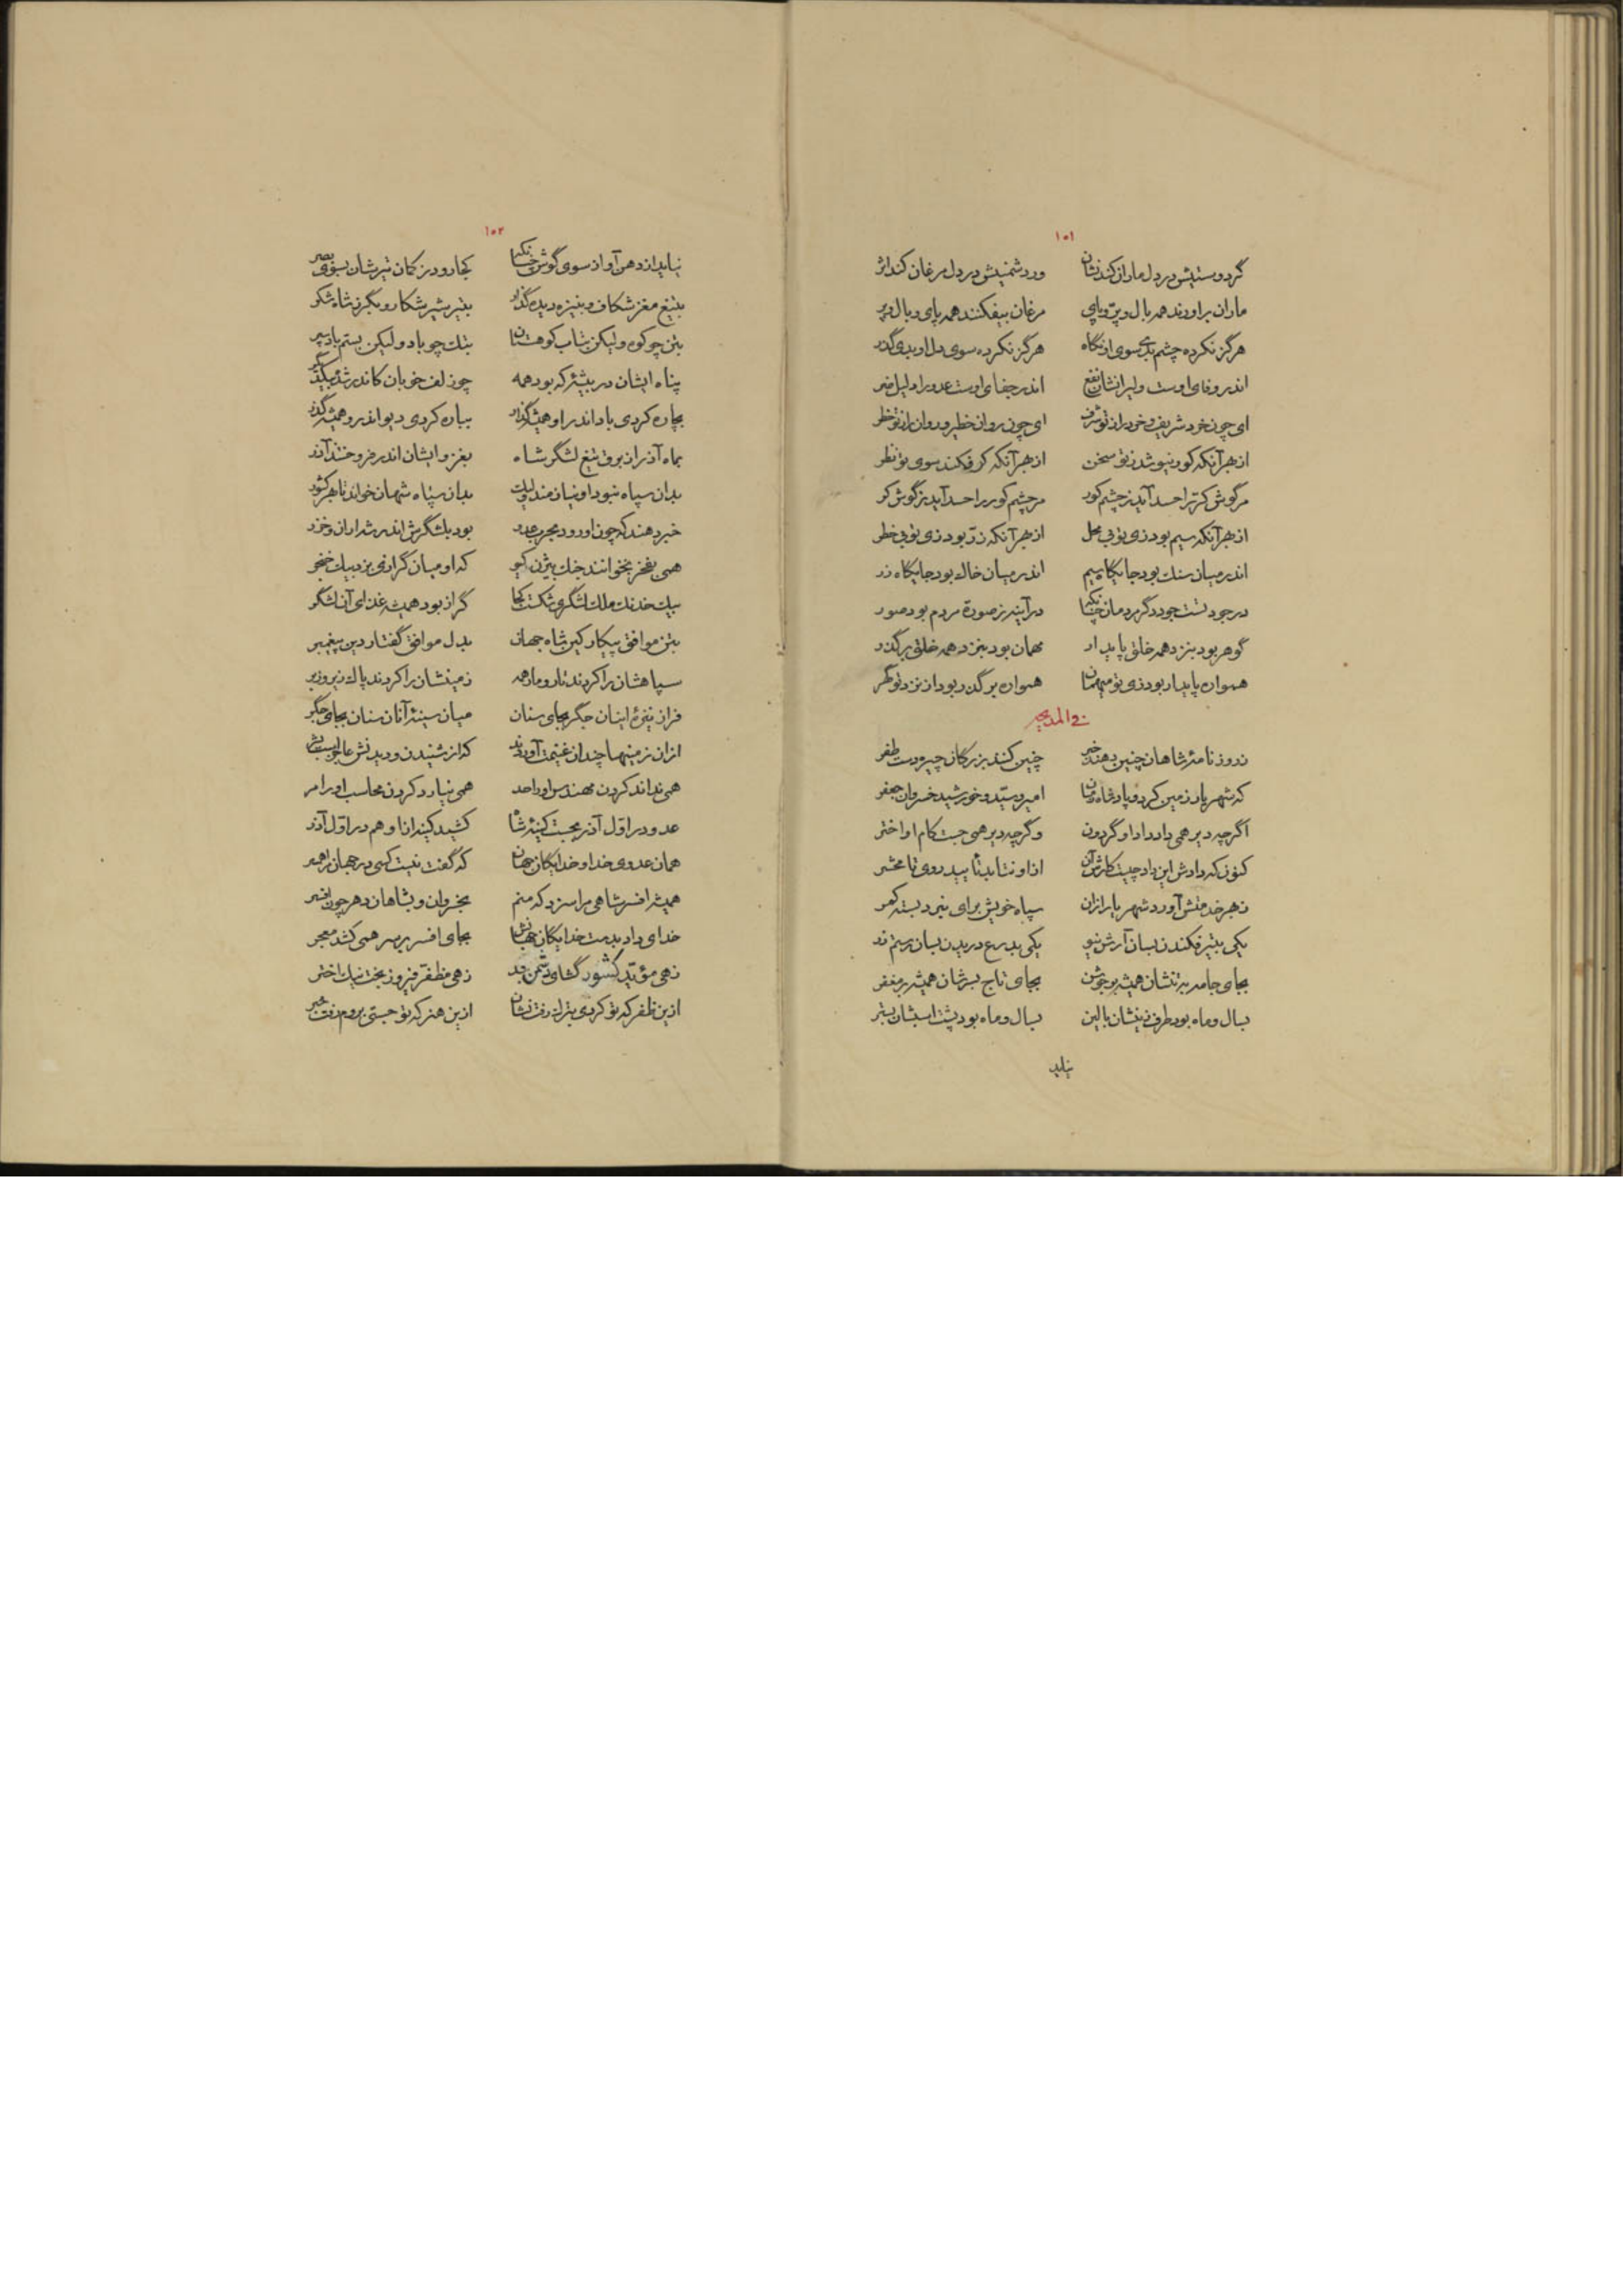 ۱۰۱
گر دوستیش در دل ماران کند نشان ور دشمنیش در دل مرغان کند اثر
ماران براورند همه بال و پرّ و پای مرغان بیفکنند همه پای و بال و پر
هرگز نکرده چشم بدی سوی او نگاه هرگز نکرده سوی دل او بدی گذر
اندر وفای اوست ولیرا نشان نفع اندر جفای اوست عدورا دلیل ضر
ای چون خرد شریف و خردرا ز تو شرف ای چون روان خطیر و روان را ز تو خطر
از هر آنکه کور نیوشد ز تو سخن از هر آنکه کر فکند سوی تو نظر
مر گوش کر ترا حسد آید ز چشم کور مر چشم کور را حسد آید ز گوش کر
از هر آنکه سیم بود زی تو بی محل از هر آنکه زرّ بود زی تو بی خطر
اندر میان سنك بود جایگاه سیم اندر میان خاك بود جایگاه زر
در جود تست جود دگر مردمان چنانکه در آینه ز صورة مردم بود صور
گوهر بود بنزد همه خلق پایدار مهمان بود بنزد همه خلق برگذر
همواره پایدار بود زی تو میهمان همواره برگذر بود از نزد تو گهر
فی المدیح
ز روزنامۀ شاهان چنین دهند خبر چنین کنند بزرگان چیره دست ظفر
که شهریار زمین کرد و پادشاه زمان امیر و سیّد و خورشید خسروان جعفر
اگرچه دیر همی داد داد او گردون وگرچه دیر همی جست کام او اختر
کنون که دادش این داد چیست کارش آن ازاو نتابد تأیید روی تا محشر
ز هر خدمتش آورد شهریار اران سپاه خویش برای نبرد بسته کمر
یکی بتیر فکندن بسان آرش نیو یکی بدرع دریدن بسان رستم زر
بجای جامه بر تنشان همیشه بر جوشن بجای تاج بسرشان همیشه بر مغفر
بسال و ماه بود طرف زینشان بالین بسال و ماه بود پشت اسبشان بستر
نیاید
۱۰۲
نیاید از دهن آواز سوی گوش چنانکه کجا رود ز کمان تیرشان بسوی بصر
بتیغ مغز شکاف و بنیزه دیده گذار بتیر شیر شکار و بگرز شاه شکر
بتن چو کوه ولیکن بتاب کوهستان بتك چو باد ولیکن بستم باد سپر
پناه ایشان در بیشۀ که بود همه چو زلف خوبان کاندر شده بیکدیگر
بچاره کردی باد اندر او همیشه گذار بباره کردی دیو اندرو همیشه گذر
بماه آذر از برق تیغ لشگر شاه بغزو ایشان اندر فروختند آذر
بدان سپاه نبود او نیازمند ولیك بدان سپاه شهان خواند تا هر کشور
خبر دهند که چون او رود بحرب عدو بود بلشگرش اندر شه اران و خزر
همی بفخر بخوانند جنك بیژن گیو که او میان گرازی بزد بیك خنجر
بیك خدنك ملك لشگری شکست کجا گراز بود همیشه غذای آن لشگر
بتن موافق پیکار کین شاه جهان بدل موافق گفتار دین پیغمبر
سپاهشان را کردند تار و مار همه زمینشان را کردند پاك زیر و زبر
فراز نیزۀ اینان جگر بجای سنان میان سینۀ آنان سنان بجای جگر
ازان زمینها چندان غنیمت آوردند که از شنیدن و دیدنش عاجزست بشر
همی نداند کردن مهندس اورا حد همی نیارد کردن محاسب اورا مر
عدو در اول آذر بجست کینۀ شاه کشید کینه ازاو هم در اول آذر
همان عدوی خدا و خدایگان جهان که گفت نیست کسی در جهان مرا همبر
همیشه افسر شاهی مرا سزد که منم بخسروان و بشاهان دهر چون افسر
خدای داد بدست خدایگان جهانش بجای افسر بر سر همی کشد معجر
زهی مؤیّد کشور گشای دشمن بند زهی مظفّر فیروز بخت نیك اختر
ازین ظفر که تو کردی بترك رفت نشان ازین هنر که تو جستی بروم رفت خبر